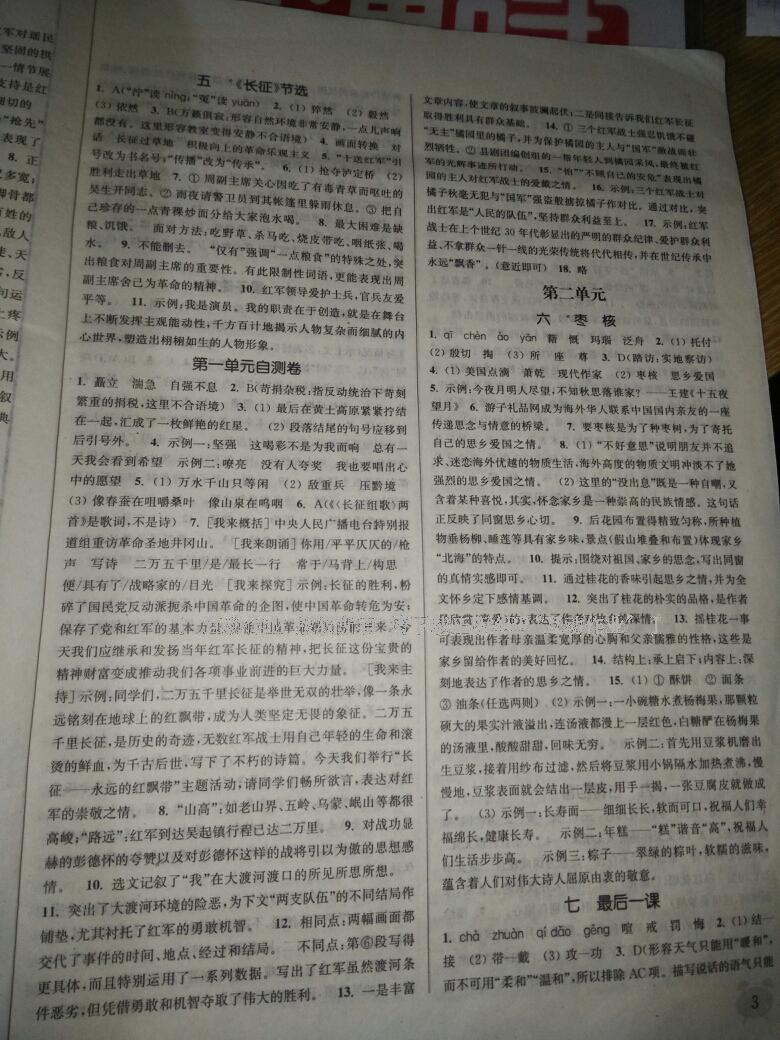 五 *《长征》节选
1. A(“泞”读 nìng;“冤”读 yuān) 2. (1) 猝然 (2) 毅然
(3) 依然 3. B(万籁俱寂:形容自然环境非常安静,一点儿声响
都没有。这里形容教室变得安静不合语境) 4. 画面转换 对
话 长征过草地 积极向上的革命乐观主义 5. “十送红军”引
号改为书名号;“传播”改为“传承”。 6. (1) 抢夺泸定桥 (2)
胜利走出草地 7. ① 周副主席关心因吃了有毒青草而呕吐的
吴生开同志。② 雨夜请警卫员到其帐篷里躲雨休息。③ 把自
己珍存的一点青稞炒面分给大家泡水喝。 8. 最大困难是缺
粮、饥饿。 面对方法:吃野草、杀马吃、烧皮带吃、咽纸张、喝
水。 9. 不能删去。 “仅有”强调“一点粮食”的特殊之处,突
出粮食对周副主席的重要性。有此限制性词语,更能表现出周
副主席舍己为革命的精神。 10. 红军领导爱护士兵,官兵友爱
平等。 11. 示例:我是演员。我的职责在于创造,就是在舞台
上不断发挥主观能动性,千方百计地揭示人物复杂而细腻的内
心世界,塑造出栩栩如生的人物形象。
第一单元自测卷
1. 矗立 湍急 自强不息 2. B(苛捐杂税:指反动统治下苛刻
繁重的捐税,这里不合语境) 3. (1) 最后在黄土高原紧紧拧结
在一起,汇成了一枚鲜艳的红星。 (2) 段落结尾的句号应移到
后引号外。 4. 示例一:坚强 这喝彩不是为我而响 总有一
天我会看到希望 示例二:嘹亮 没有人夸奖 我也要唱出心
中的愿望 5. (1) 万水千山只等闲 (2) 敌重兵 压黔境
(3) 像春蚕在咀嚼桑叶 像山泉在呜咽 6. A(《〈长征组歌〉两
首》是歌词,不是诗) 7. [我来概括] 中央人民广播电台特别报
道组重访革命圣地井冈山。 [我来朗诵] 你用/平平仄仄的/枪
声 写诗 二万五千里/是/最长一行 常于/马背上/构思
便/具有了/战略家的/目光 [我来探究] 示例:长征的胜利,粉
碎了国民党反动派扼杀中国革命的企图,使中国革命转危为安;
保存了党和红军的基本力量,
天我们应继承和发扬当年红军长征的精神,把长征这份宝贵的
精神财富变成推动我们各项事业前进的巨大力量。 [我来主
持] 示例:同学们,二万五千里长征是举世无双的壮举,像一条永
远铭刻在地球上的红飘带,成为人类坚定无畏的象征。二万五
千里长征,是历史的奇迹,无数红军战士用自己年轻的生命和滚
烫的鲜血,为千古后世,写下了不朽的诗篇。今天我们举行“长
征——永远的红飘带”主题活动,请同学们畅所欲言,表达对红
军的崇敬之情。 8. “山高”:如老山界、五岭、乌蒙、岷山等都很
高峻;“路远”:红军到达吴起镇行程已达二万里。 9. 对战功显
赫的彭德怀的夸赞以及对彭德怀这样的战将引以为傲的思想感
情。 10. 选文记叙了“我”在大渡河渡口的所见所思所想。
11. 突出了大渡河环境的险恶,为下文“两支队伍”的不同结局作
铺垫,尤其衬托了红军的勇敢机智。 12. 相同点:两幅画面都
交代了事件的时间、地点、经过和结局。 不同点:第⑥段写得
更具体,而且特别运用了一系列数据,写出了红军虽然渡河条
件恶劣,但凭借勇敢和机智夺取了伟大的胜利。 13. 一是丰富
文章内容,使文章的叙事波澜起伏;二是间接告诉我们红军长征
取得胜利具有群众基础。 14. ① 三个红军战士强忍饥饿不碰
“无主”橘园里的橘子,并为保护橘园的主人与“国军”激战而壮
烈牺牲。② 县剧团编创组的一帮年轻人到橘园采风,最终被红
军的光辉事迹所打动。 15. “怕”“不顾自己的安危”表现出橘
园的主人对红军战士的爱戴之情。 16. 示例:三个红军战士对
橘子秋毫无犯与“国军”强盗般掳掠橘子作对比。通过对比,突
出红军是“人民的队伍”,坚持群众利益至上。 17. 示例:红军
战士在上个世纪 30 年代彰显出的严明的群众纪律、爱护群众利
益、不拿群众一针一线的光荣传统将代代相传,并在世纪传承中
永远“飘香”。(意近即可) 18. 略
第二单元
六 枣 核
1. qī chèn ào yān 蕴 慨 玛瑙 泛舟 2. (1) 托付
(2) 殷切 掏 (3) 所 座 尊 3. D(踏访:实地察访)
4. (1) 美国点滴 萧乾 现代作家 (2) 枣核 思乡爱国
5. 示例:今夜月明人尽望,不知秋思落谁家?——王建《十五夜
望月》 6. 游子礼品网成为海外华人联系中国国内亲友的一座
传递思念与情意的桥梁。 7. 要枣核是为了种枣树;为了寄托
自己的思乡爱国之情。 8. (1) “不好意思”说明朋友并不追
求、迷恋海外优越的物质生活,海外高度的物质文明冲淡不了她
强烈的思乡爱国之情。 (2) 这里的“没出息”既是一种自嘲,又
含着某种喜悦,其实,怀念家乡是一种崇高的民族情感。这句话
正反映了同窗思乡心切。 9. 后花园布置得精致匀称,所种植
物垂杨柳、睡莲等具有家乡味,景点(假山堆叠和布置)体现家乡
“北海”的特点。 10. 提示:围绕对祖国、家乡的思念,写出同窗
的真情实感即可。 11. 通过桂花的香味引起思乡之情,并为全
文怀乡定下感情基调。 12. 突出了桂花的朴实的品格,是作者
13. 摇桂花一事
可表现出作者母亲温柔宽厚的心胸和父亲儒雅的性格,这些是
家乡留给作者的美好回忆。 14. 结构上:承上启下;内容上:深
刻地表达了作者的思乡之情。 15. (1) ① 酥饼 ② 面条
③ 油条(任选两则) (2) 示例一:一小碗糖水煮杨梅果,那颗粒
硕大的果实汁液溢出,连汤液都漫上一层红色,白糖贮在杨梅果
的汤液里,酸酸甜甜,回味无穷。 示例二:首先用豆浆机磨出
生豆浆,接着用纱布过滤,然后将豆浆用小锅隔水加热煮沸,慢
慢地,豆浆表面就会结出一层皮,用手一揭,一张豆腐皮就做成
了。 (3) 示例一:长寿面——细细长长,软而可口,祝福人们幸
福绵长,健康长寿。 示例二:年糕——“糕”谐音“高”,祝福人
们生活步步高。 示例三:粽子——翠绿的粽叶,软糯的滋味,
蕴含着人们对伟大诗人屈原由衷的敬意。
七 最后一课
1. chà zhuàn qí dǎo gēng 喧 戒 罚 悔 2. (1) 结—
接 (2) 带—戴 (3) 攻—功 3. D(形容天气只能用“暖和”,
而不可用“柔和”“温和”,所以排除 AC 项。描写说话的语气只能
3